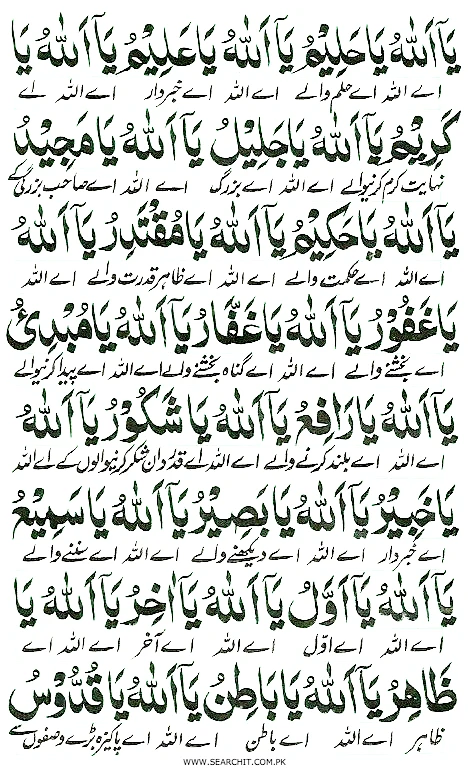 یَآاَللهُ یَاحَلِیْمُ یَآاَللهُ یَاعَلِیْمُ یَآاَللهُ یَا
اے اللہ اے حلم والے اے اللہ اے خبردار اے اللہ اے
کَرِیْمُ یَآاَللهُ یَاجَلِیْلُ یَآاَللهُ یَامَجِیْدُ
نہایت کرم کرنیوالے اے اللہ اے بزرگ اے اللہ اے صاحب بزرگی کے
یَآاَللهُ یَاحَکِیْمُ یَآاَللهُ یَامُقْتَدِرُ یَآاَللهُ
اے اللہ اے حکمت والے اے اللہ اے ظاہر قدرت والے اے اللہ
یَاغَفُوْرُ یَآاَللهُ یَاغَفَّارُ یَآاَللهُ یَامُبْدِئُ
اے بخشنے والے اے اللہ اے گناہ بخشنے والے اے اللہ اے پیدا کرنیوالے
یَآاَللهُ یَارَافِعُ یَآاَللهُ یَاشَکُوْرُ یَآاَللهُ
اے اللہ اے بلند کرنے والے اے اللہ اے قدردان شکر کرنیوالوں کے اے اللہ
یَاخَبِیْرُ یَآاَللهُ یَابَصِیْرُ یَآاَللهُ یَاسَمِیْعُ
اے خبردار اے اللہ اے دیکھنے والے اے اللہ اے سننے والے
یَآاَللهُ یَآاَوَّلُ یَآاَللهُ یَآاٰخِرُ یَآاَللهُ یَا
اے اللہ اے اوّل اے اللہ اے آخر اے اللہ اے
ظَاهِرُ یَآاَللهُ یَابَاطِنُ یَآاَللهُ یَاقُدُّوْسُ
ظاہر اے اللہ اے باطن اے اللہ اے پاکیزہ بڑے وصفوں سے
WWW.SEARCHIT.COM.PK